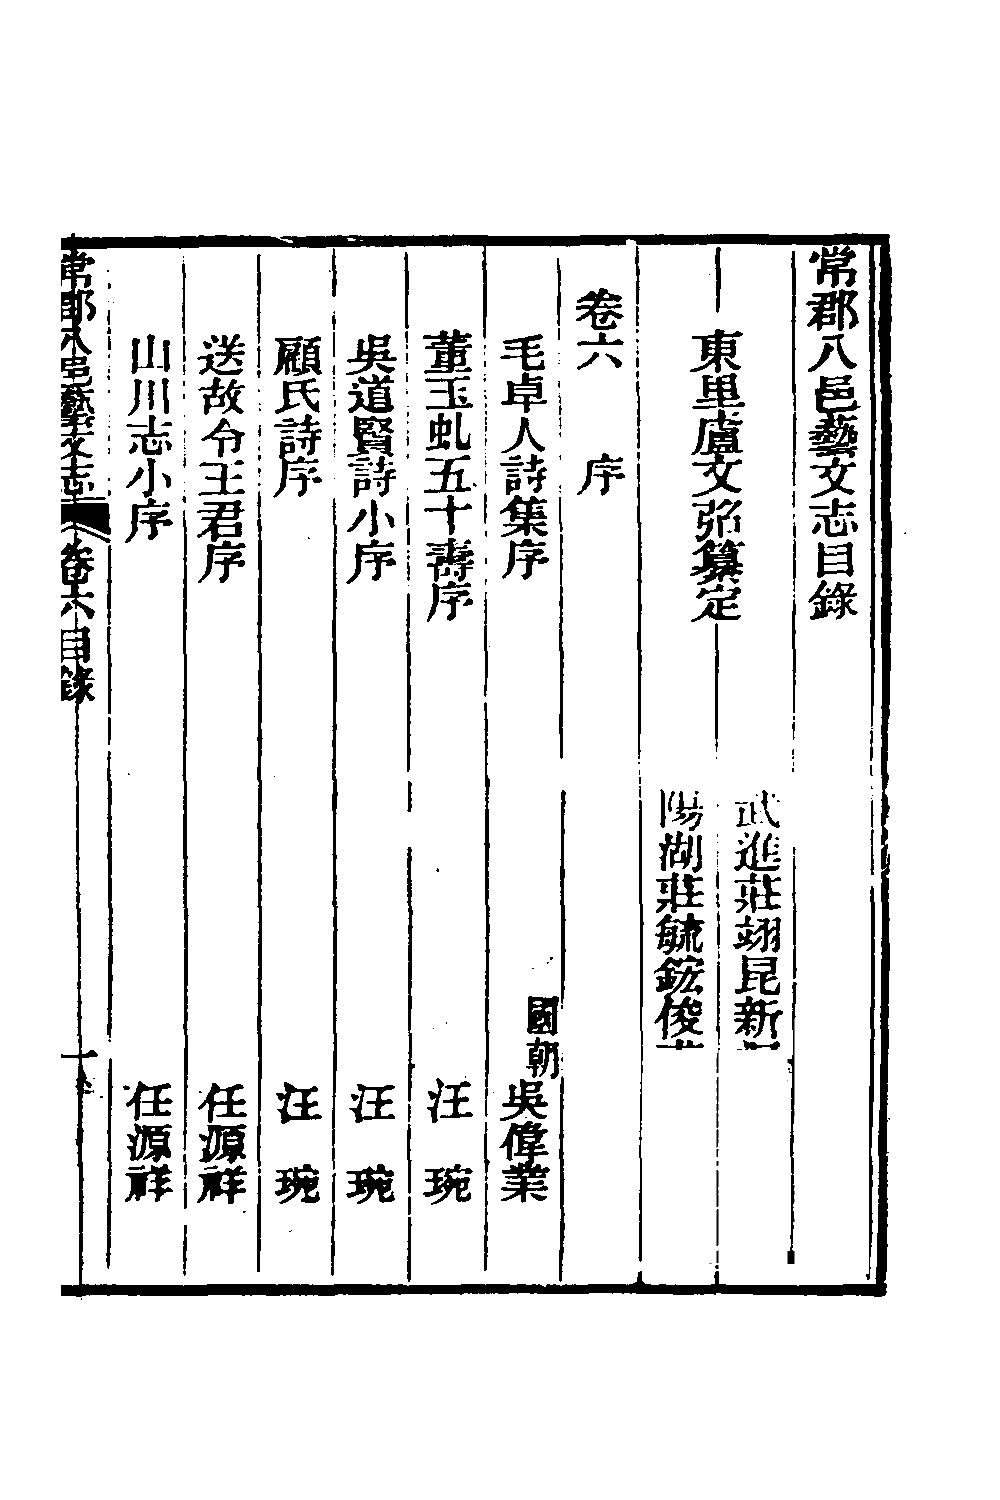 常郡八邑藝文志目錄
東里盧文弨纂定
武進莊翊昆新
陽湖莊毓鋐俊
卷六　序
毛卓人詩集序　國朝吳偉業
董玉虬五十壽序　汪琬
吳道賢詩小序　汪琬
顧氏詩序　汪琬
送故令王君序　任源祥
山川志小序　任源祥
常郡八邑藝文志　卷六目錄　一